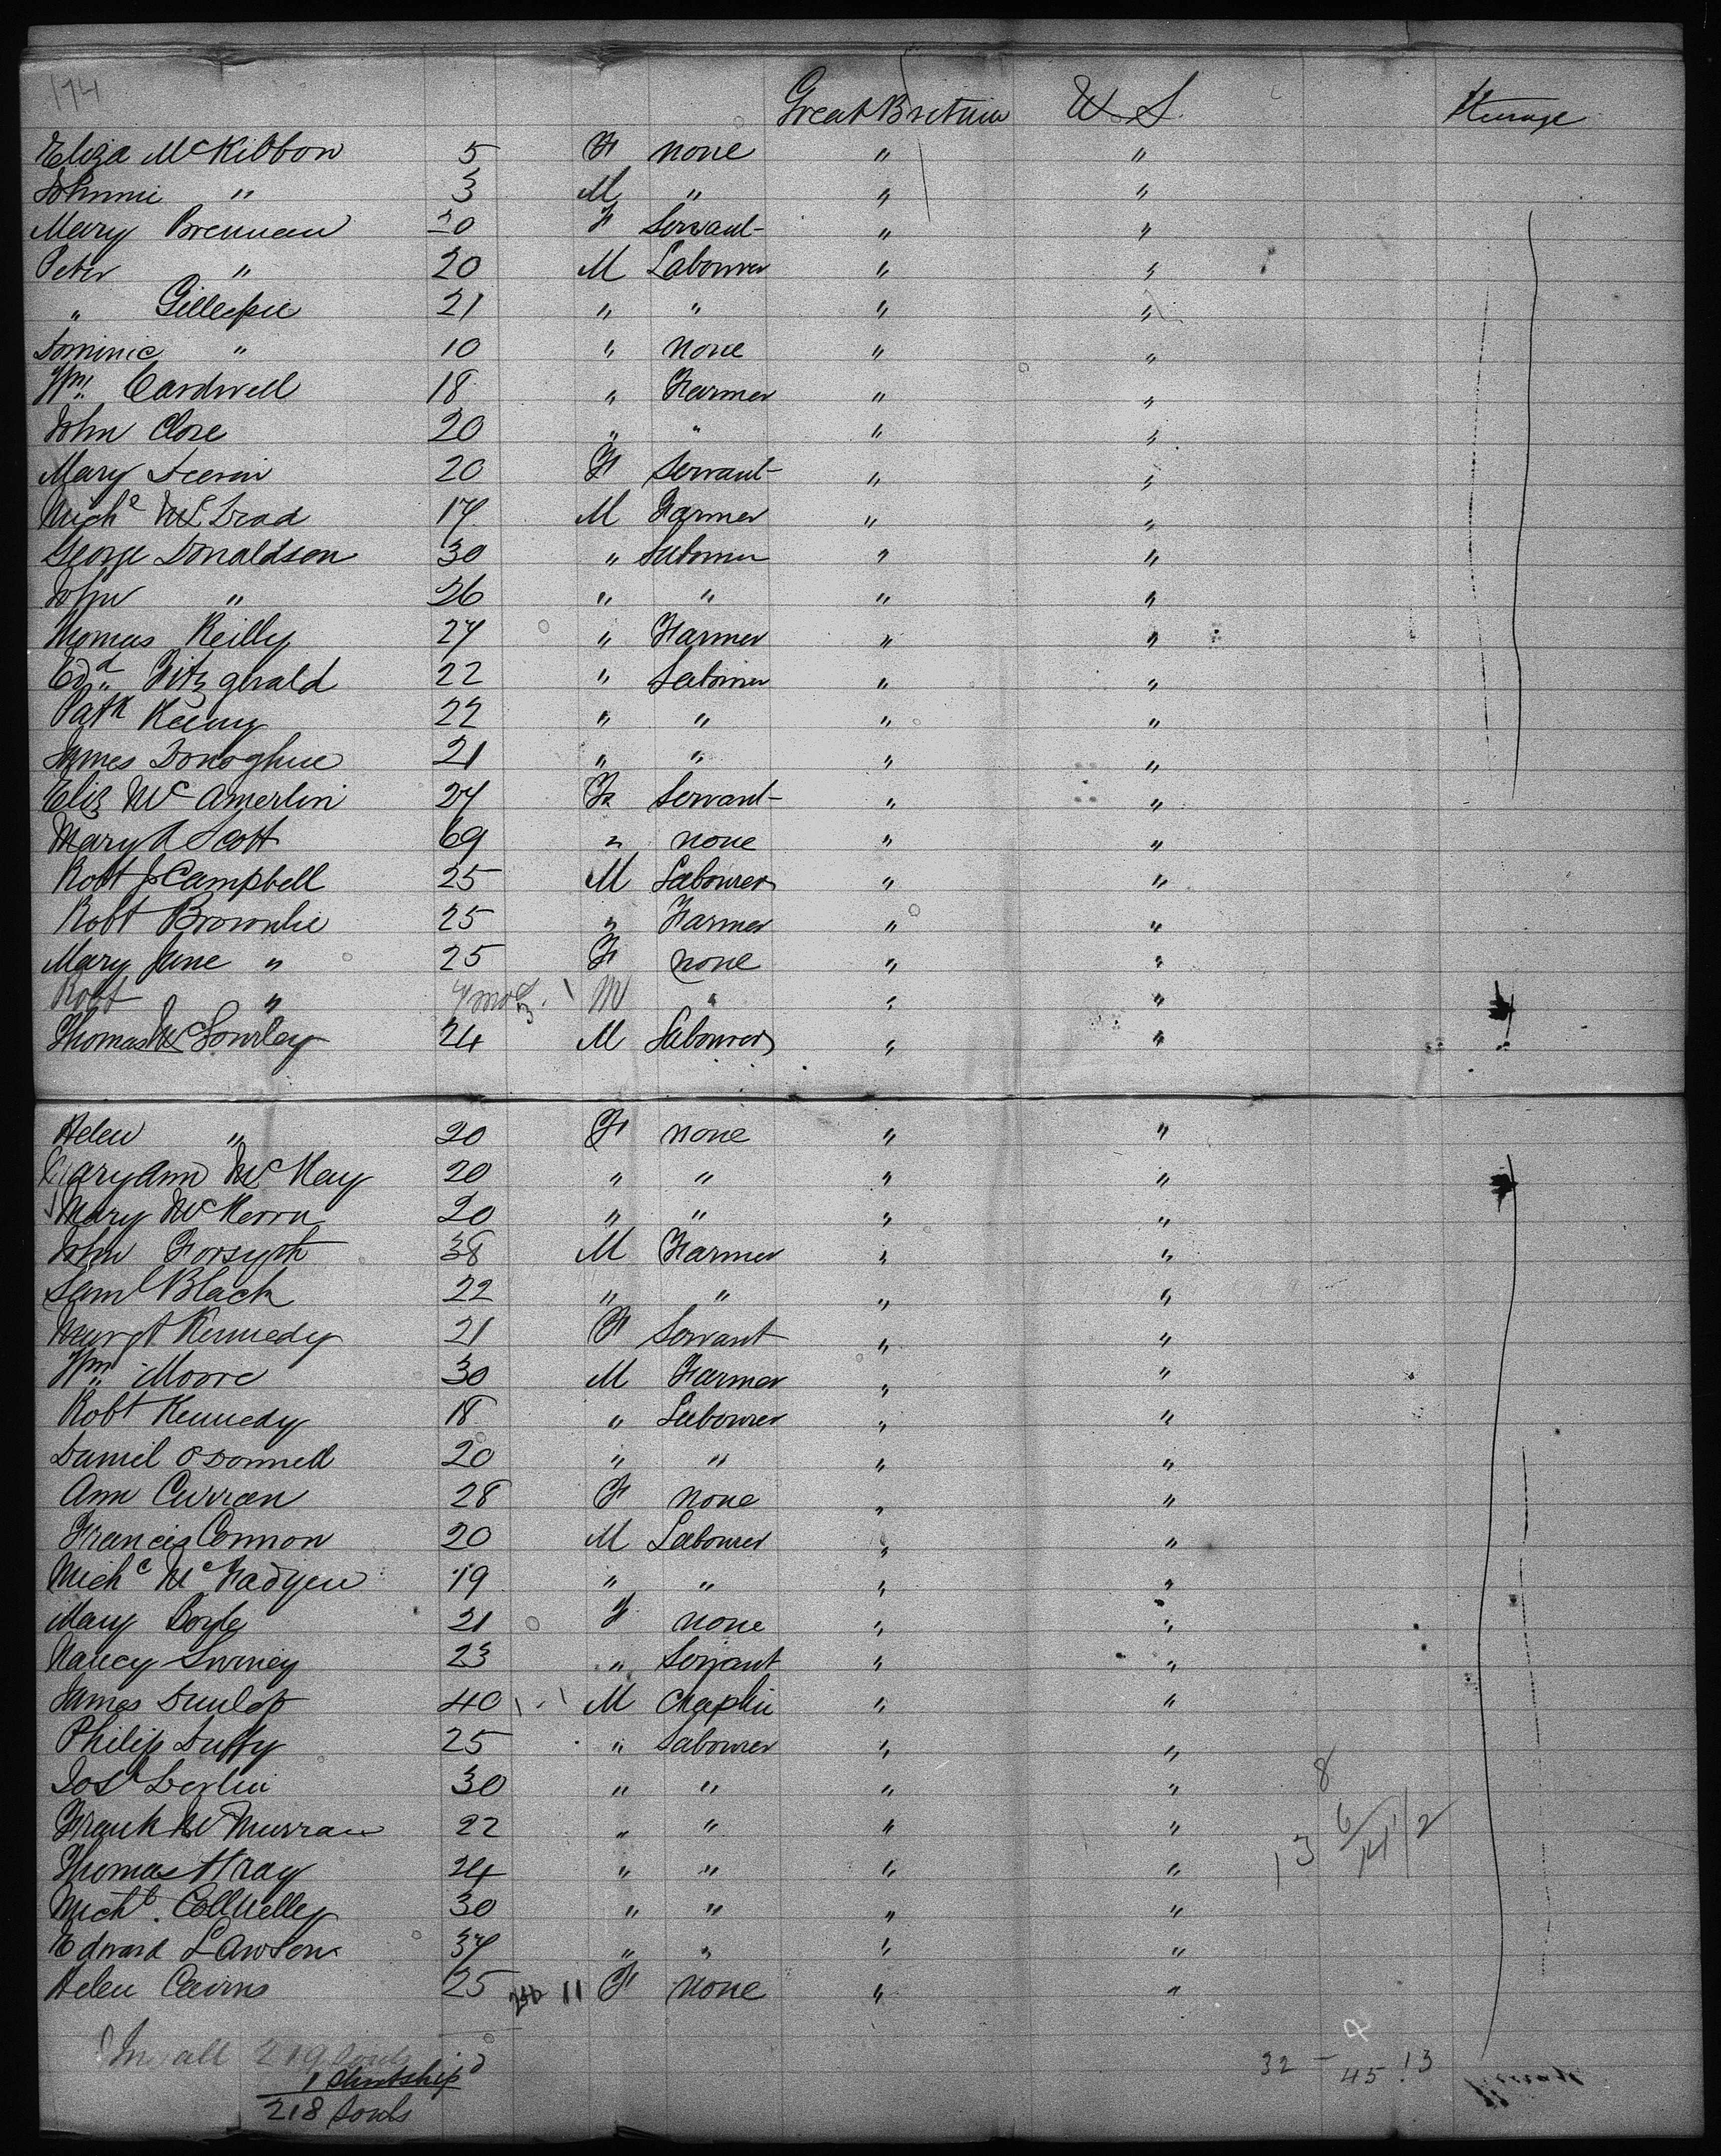 174
Great Britain U S. Steerage
Eliza McKibbon 5 F none " "
Johnnie " 3 M " " "
Mary Brennan 20 F Servant " "
Peter " 20 M Labourer " "
" Gillespie 21 " " " "
Dominic " 10 " none " "
Wm. Cardwell 18 " Farmer " "
John Close 20 " " " "
Mary 20 F Servant " "
Mich 17 M Farmer " "
George Donaldson 30 " Labourer " "
John " 26 " " " "
Thomas Reilly 27 " Farmer " "
Edd Fitzgerald 22 " Labourer " "
Patk 22 " " " "
James Donoghue 21 " " " "
Eliz McAmerlin 27 F Servant " "
Mary A Scott 69 " none " "
Robt J Campbell 25 M Labourer " "
Robt Brownlie 25 " Farmer " "
Mary Jane " 25 F none " "
Robt " mos M " " "
Thomas 24 M Labourer " "
Helen " 20 F none " "
Mary Ann McKay 20 " " " "
Mary 20 " " " "
John Forsyth 38 M Farmer " "
Saml Black 22 " " " "
Margt Kennedy 21 F Servant " "
Wm. Moore 30 M Farmer " "
Robt Kennedy 18 " Labourer " "
Daniel O'Donnell 20 " " " "
Ann Curran 28 F none " "
Francis Connon 20 M Labourer " "
Mich McFadyen 19 " " " "
Mary Boyle 21 F none " "
Nancy 23 " Servant " "
James Dunlop 40 M " "
Philip Duffy 25 " Labourer " "
30 " " " "
Frank McMurran 22 " " " "
Thomas 24 " " " "
Mich 30 " " " "
Edward Lawson 37 " " " "
Helen Cairns 25 11 F none " "
8
13 6/14 1/2
In all 219 Souls
1
218 Souls
32 - 45 13